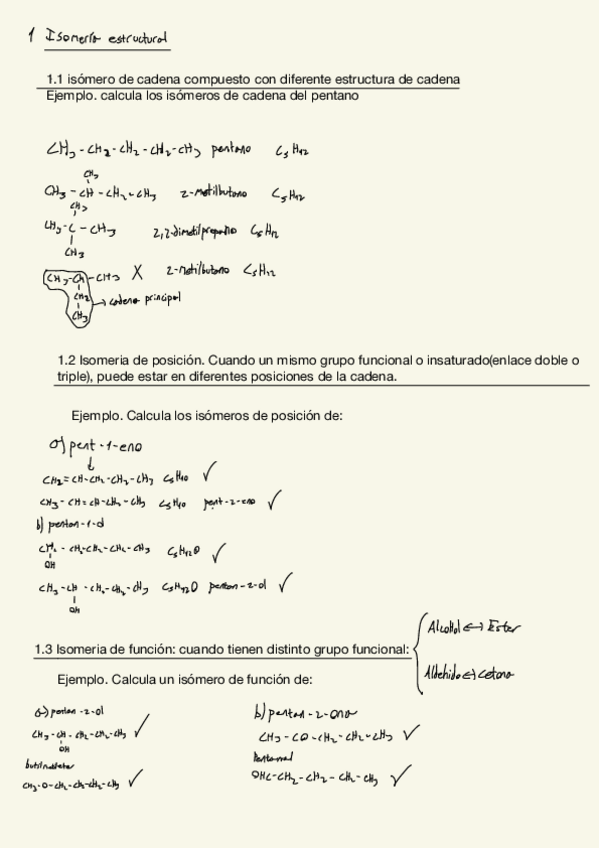 1 Isomería estructural
1.1 isómero de cadena compuesto con diferente estructura de cadena
Ejemplo. calcula los isómeros de cadena del pentano
CH3 - CH2 - CH2 - CH2 - CH3 pentano C5H12
CH3
CH3 - CH - CH2 - CH3 2-metilbutano C5H12
CH3
CH3 - C - CH3 2,2-dimetilpropano C5H12
CH3
CH3 - CH - CH3 X 2-metilbutano C5H12
CH2 → cadena principal
CH3
1.2 Isomeria de posición. Cuando un mismo grupo funcional o insaturado(enlace doble o
triple), puede estar en diferentes posiciones de la cadena.
Ejemplo. Calcula los isómeros de posición de:
a) pent-1-eno
CH2 = CH - CH2 - CH2 - CH3 C5H10 ✓
CH3 - CH = CH - CH2 - CH3 C5H10 pent-2-eno ✓
b) pentan-1-ol
CH2 - CH2 - CH2 - CH2 - CH3 C5H12O ✓
OH
CH3 - CH - CH2 - CH2 - CH3 C5H12O pentan-2-ol ✓
OH
Alcohol ↔ Éster
1.3 Isomeria de función: cuando tienen distinto grupo funcional:
Aldehído ↔ cetona
Ejemplo. Calcula un isómero de función de:
a) pentan-2-ol
CH3 - CH - CH2 - CH2 - CH3 ✓
OH
CH3 - O - CH2 - CH2 - CH2 - CH3 ✓
b) pentan-2-ona
CH3 - CO - CH2 - CH2 - CH3 ✓
Pentanal
OHC - CH2 - CH2 - CH2 - CH3 ✓